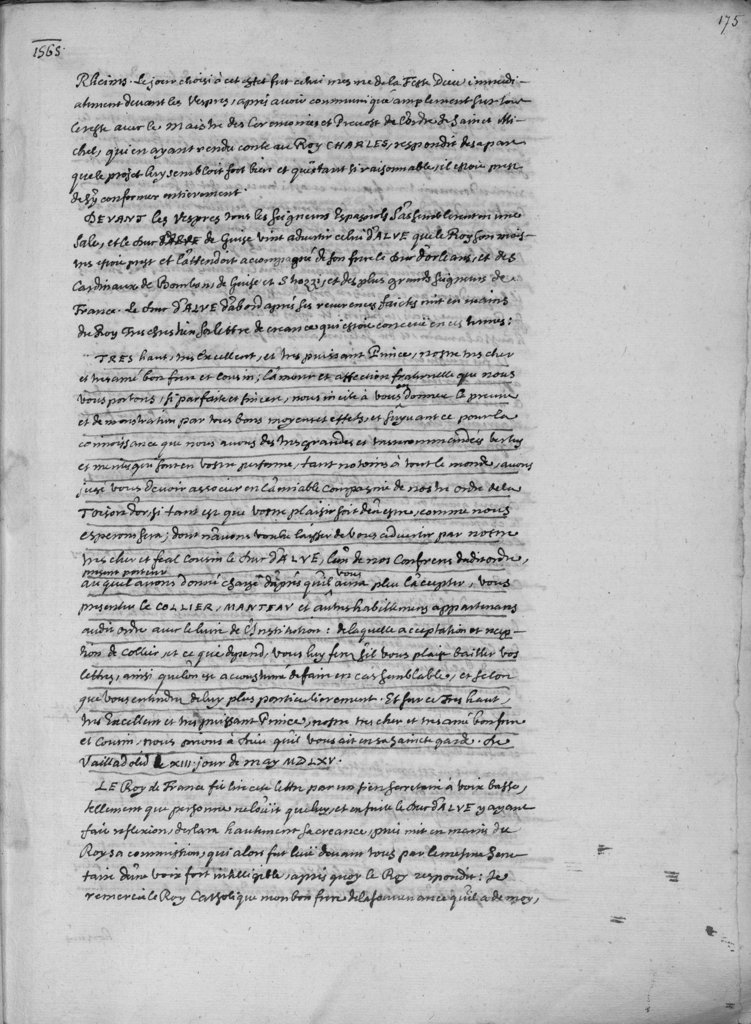 175
1565.
Rheims. Le jour choisi à cet effet fut celui mesme de la Feste Dieu immedi-
atement devant les Vespres, apres avoir communiqué amplement sur tout
le reste avec le Maistre des Ceremonies et Prevost de l'ordre de Sainct Mi-
chel, qui en ayant rendu conte au Roy CHARLES, respondit de sa part
que le projet luy sembloit fort bien et qu'estant si raisonnable, il estoit prest
de s'y conformer entierement.
DEVANT les Vespres tous les Seigneurs Espagnols s'assemblerent en une
Sale, et le duc de Guise vint advertir celui d'ALVE que le Roy son mais-
tre estoit prest et l'attendoit accompagné de son frere le duc d'orleans, et des
Cardinaux de Bourbon, de Guise et Strozzi, et des plus grands Seigneurs de
France. Le duc d'ALVE d'abord apres ses reverences faictes mit en mains
du Roy Tres chrestien sa lettre de creance qui estoit conceuë en ces termes:
TRES haut, tres excellent, et tres puissant Prince, nostre tres cher
et tres amé bon frere et cousin; l'amour et affection fraternelle que nous
vous portons, si parfaite et sincere, nous incite à vous en donner la preuve
et demonstration par tous bons moyens et effets, et suyvant ce pour la
connoissance que nous avons des tres grandes et tres recommandées vertus
et merites qui sont en vostre personne, tant notoires à tout le monde, avons
jugé vous devoir associer en l'amiable Compagnie de nostre ordre de la
Toison d'or, si tant est que vostre plaisir soit de l'accepter, comme nous
esperons sera; dont n'avons voulu laisser de vous advertir par nostre
tres cher et feal Cousin le duc d'ALVE, l'un de nos Confreres dudit ordre,
present porteur
auquel avons donné charge d'apres qu'il vous aura pleu l'accepter, vous
presenter le COLLIER, MANTEAU et autres habillemens appartenans
audit ordre avec le livre de l'Institution: de laquelle acceptation et recep-
tion de Collier, et ce qui depend, vous luy ferez s'il vous plaist bailler vos
lettres, ainsi qu'on est accoustumé de faire en cas semblable, et selon
que vous entendrez de luy plus particulierement. Et sur ce Tres haut,
tres Excellent et tres puissant Prince, nostre tres cher et tres amé bon frere
et Cousin, nous prions à dieu qu'il vous ait en sa saincte garde. De
Vailladolid le XIII. jour de may MDLXV.
LE Roy de France fit lire cete lettre par un sien Secretaire à voix basse,
tellement que personne ne l'ouït que luy, et en suite le duc d'ALVE y ayant
fait reflexion, declara hautement sa creance, puis mit en mains du
Roy sa commission, qui alors fut leuë devant tous par le mesme Secre-
taire d'une voix fort intelligible, apres quoy le Roy respondit: Je
remercie le Roy Catholique mon bon frere de la souvenance qu'il a de moy,